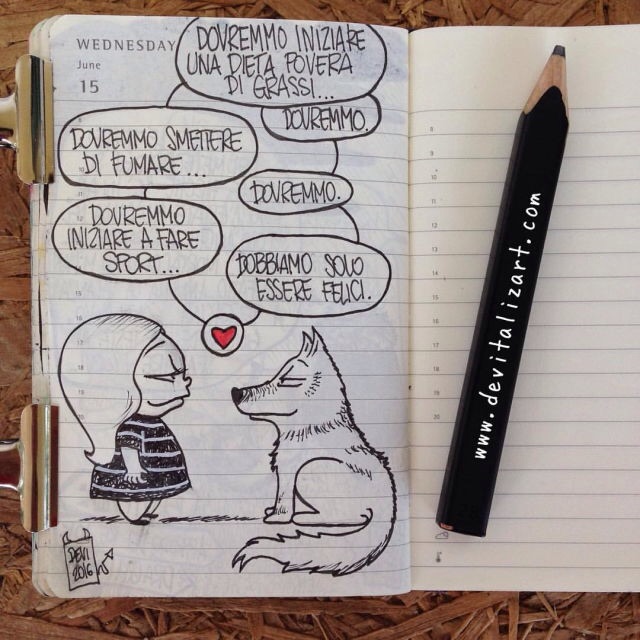 WEDNESDAY
June
15
DOVREMMO INIZIARE
UNA DIETA POVERA
DI GRASSI...
DOVREMMO.
DOVREMMO SMETTERE
DI FUMARE...
DOVREMMO.
DOVREMMO
INIZIARE A FARE
SPORT...
DOBBIAMO SOLO
ESSERE FELICI.
DEVI
2016
www.devitalizart.com
8
9
10
11
12
13
14
15
16
17
18
19
20